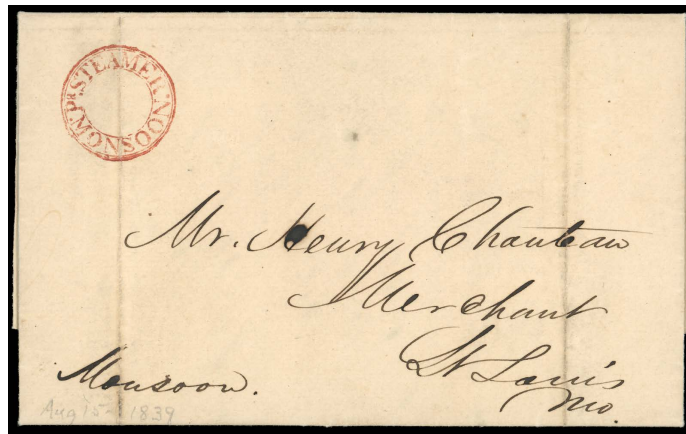 PR STEAMER MONSOON.
Mr. Henry Chouteau
Merchant
St Louis
Mo.
Monsoon.
Aug 15 - 1839